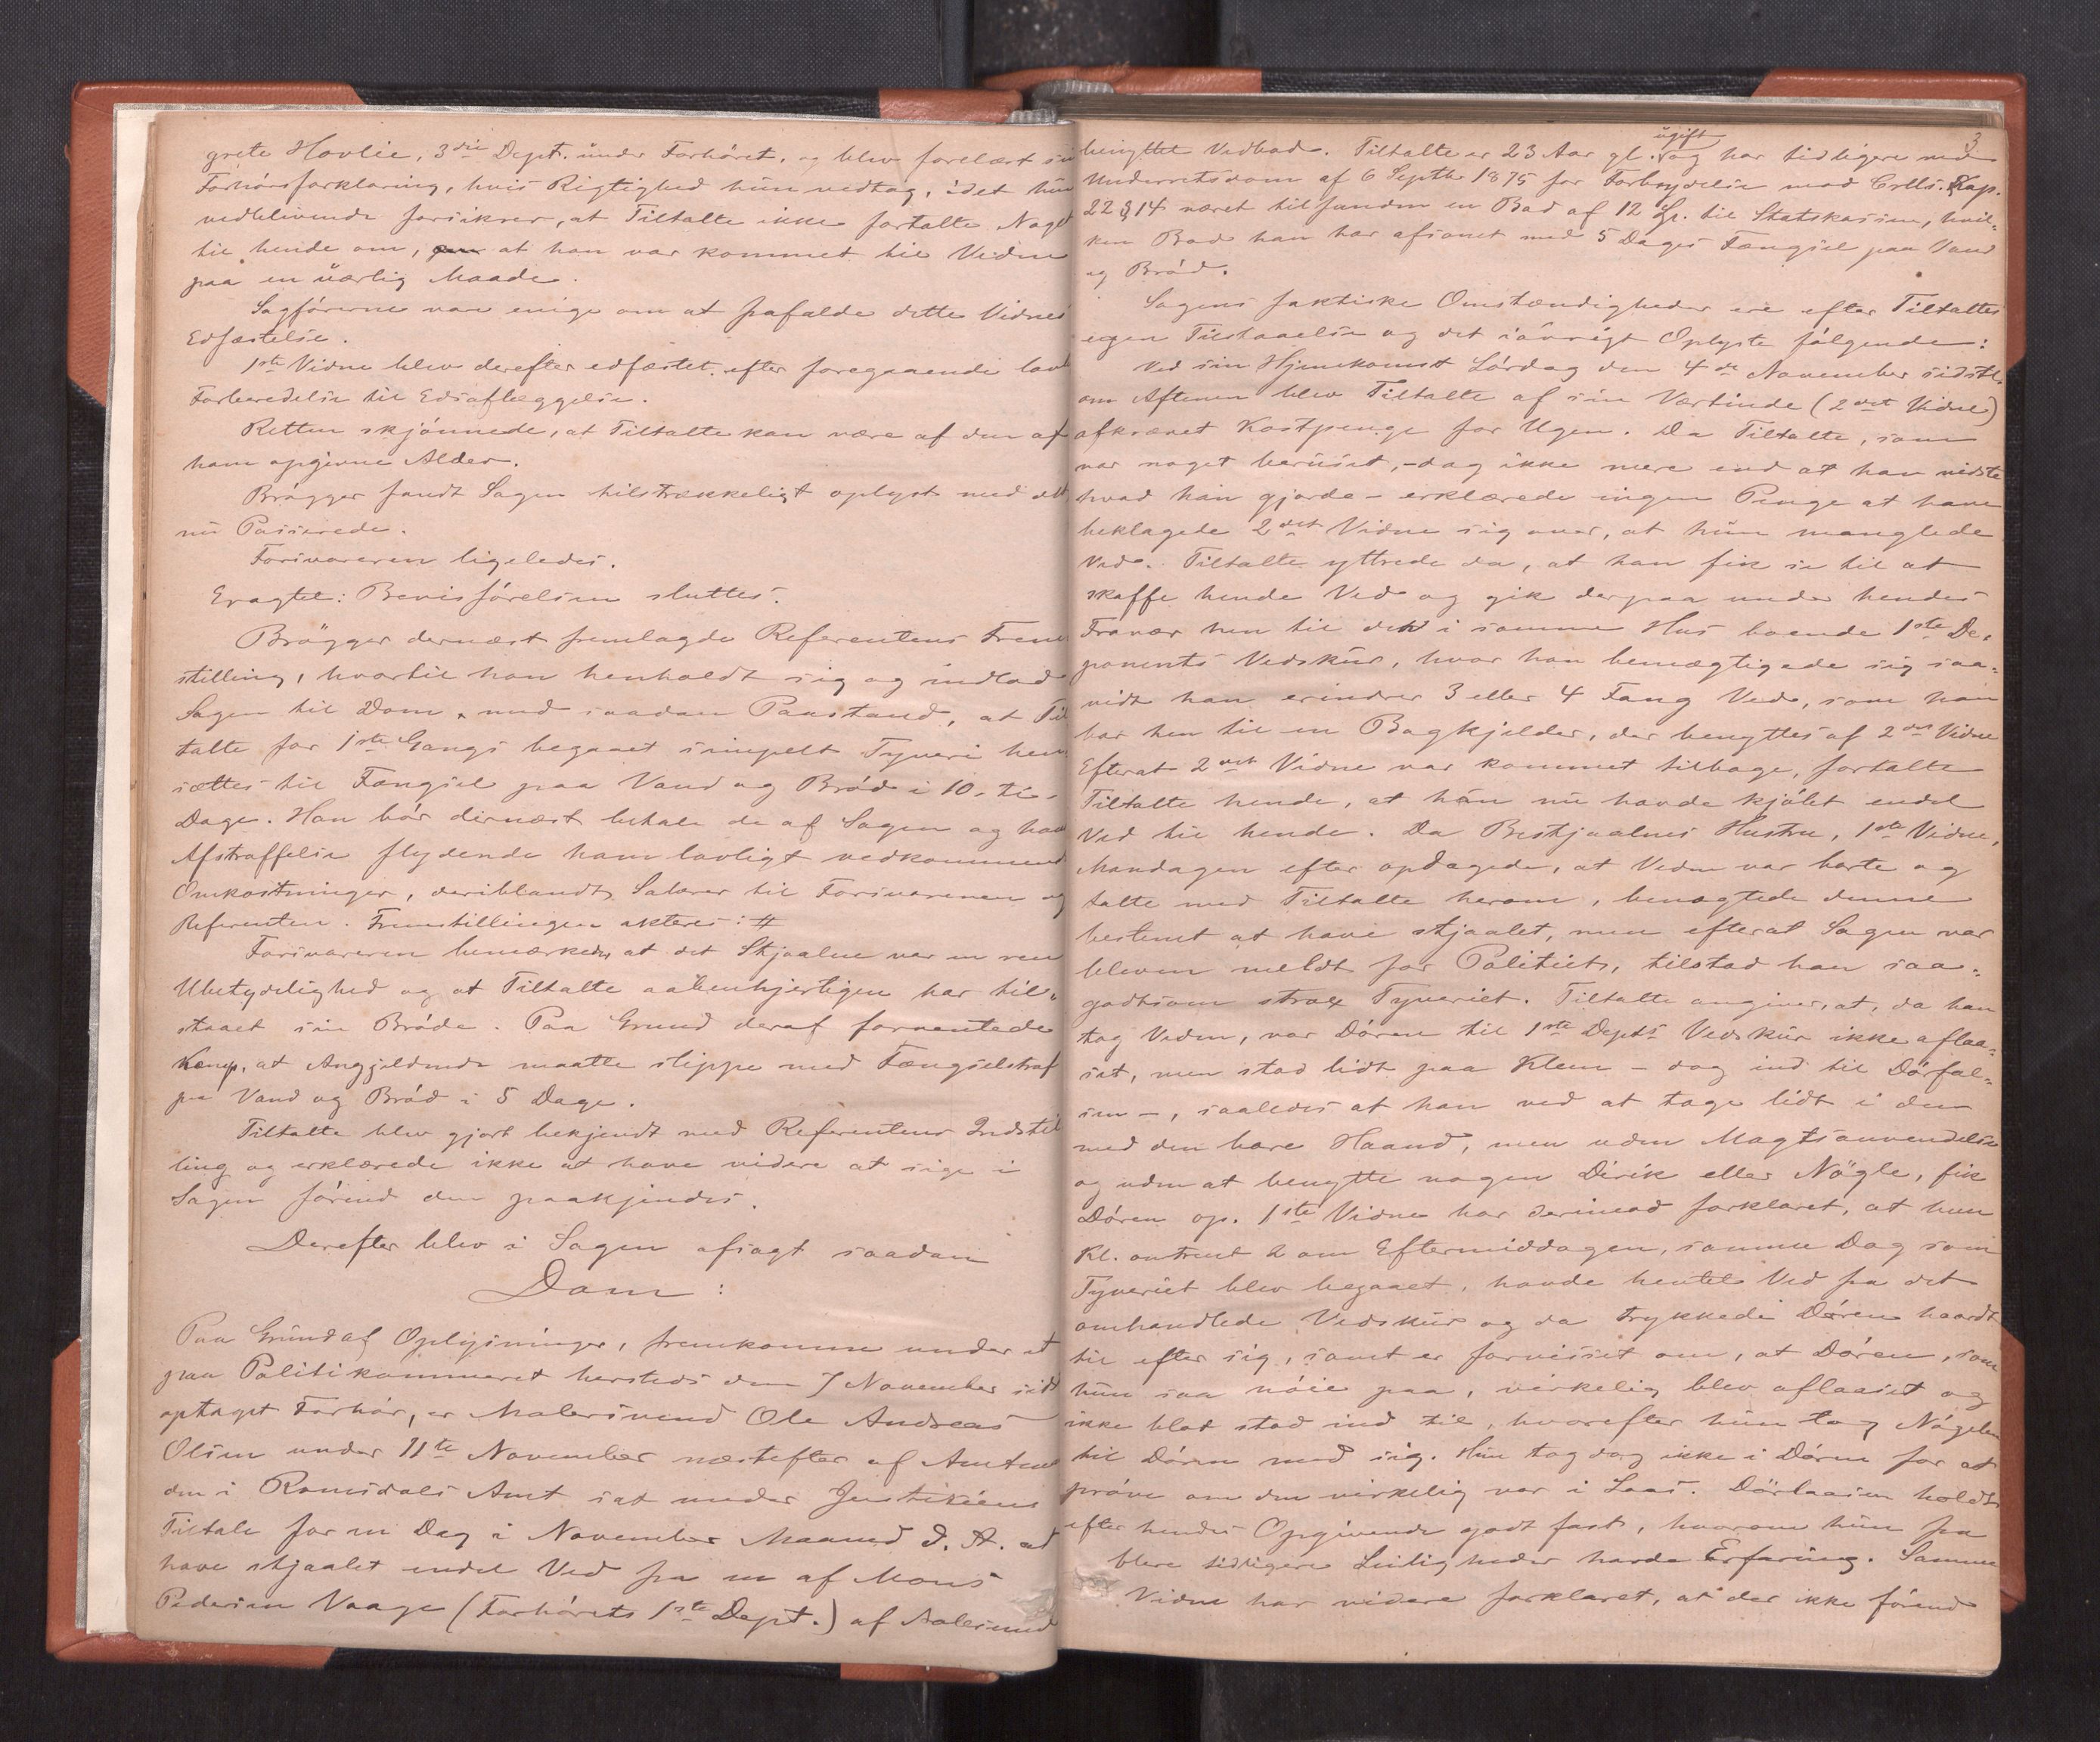 grete Hovlie, 3die Dept. under Forhøret, og blev forelæst sin
Forhørsforklaring, hvis Rigtighed hun vedtog, idet hun
vedblivende forsikrer, at Tiltalte ikke fortalte Noget
til hende om, at han var kommet til Veden
paa en uærlig Maade.
Sagførerne vare enige om at frafalde dette Vidnes
Edfæstelse.
1ste Vidne blev derefter edfæstet efter foregaaende lovl
Forberedelse til Edsaflæggelse.
Retten skjønnede, at Tiltalte kan være af den af
ham opgivne Alder.
Brøgger fandt Sagen tilstrækkeligt oplyst med det
nu Passerede.
Forsvareren ligeledes.
Eragtet: Bevisførelsen sluttes.
Brøgger dernæst fremlagde Referentens Frem
stilling, hvortil han henholdt sig og indlod
Sagen til Dom med saadan Paastand, at Til
talte for 1ste Gangs begaaet simpelt Tyveri hen
sættes til Fængsel paa Vand og Brød i 10 - ti -
Dage. Han bør dernæst betale de af Sagen og hans
Afstraffelse flydende ham lovligt vedkommende
Omkostninger, deriblandt Salærer til Forsvareren og
Referenten. Fremstillingen akteres: #
Forsvareren bemærkede, at det Stjaalne var en ren
Ubetydelighed og at Tiltalte aabenhjertigen har til-
staaet sin Brøde. Paa Grund deraf forventede
Komp. at Angjeldende maatte slippe med Fængselstraf
paa Vand og Brød i 5 Dage.
Tiltalte blev gjort bekjendt med Referentens Indstil
ling og erklærede ikke at have videre at sige i
Sagen førend den paakjendes.
Derefter blev i Sagen afsagt saadan
Dom:
Paa Grund af Oplysninger, fremkomne under et
paa Politikammeret hersteds den 7 November sidst
optaget Forhør, er Malersvend Ole Andreas
Olsen under 11te November næstefter af Amtman
den i Romsdals Amt sat under Justitiens
Tiltale for en Dag i November Maaned d. A. at
have stjaalet endel Ved fra en af Mons
Pedersen Vaage (Forhørets 1ste Dept.) af Aalesund
3
benyttet Vedbod. Tiltalte er 23 Aar gl. ugift og har tidligere ved
Underretsdom af 6 Septbr 1875 for Forbrydelse mod Crlls. Kap.
22 § 14 været tilfunden en Bod af 12 Kr. til Statskassen, hvil-
ken Bod han har afsonet med 5 Dages Fængsel paa Vand
og Brød.
Sagens faktiske Omstændigheder ere efter Tiltaltes
egen Tilstaaelse og det iøvrigt Oplyste følgende:
Ved sin Hjemkomst Lørdag den 4de November sidstl.
om Aftenen blev Tiltalte af sin Værtinde (2det Vidne)
afkrævet Kostpenge for Ugen. Da Tiltalte, som
var noget beruset, - dog ikke mere end at han vidste
hvad han gjorde - erklærede ingen Penge at have
beklagede 2det Vidne sig over, at hun manglede
Ved. Tiltalte yttrede da, at han fik se til at
skaffe hende Ved og gik derpaa under hendes
Fravær hen til det i samme Hus boende 1ste De-
ponents Vedskur, hvor han bemægtigede sig saa-
vidt han erindrer 3 eller 4 Fang Ved, som han
bar hen til en Bagkjelder, der benyttes af 2det Vidne
Efterat 2det Vidne var kommet tilbage, fortalte
Tiltalte hende, at han nu havde kjøbt endel
Ved til hende. Da Bestjaalnes Hustru, 1ste Vidne,
Mandagen efter opdagede, at Veden var borte og
talte med Tiltalte herom, benegtede denne
bestemt at have stjaalet, men efterat Sagen var
bleven meldt for Politiet, tilstod han saa-
godtsom strax Tyveriet. Tiltalte angiver, at, da han
tog Veden, var Døren til 1ste Depts Vedskur ikke aflaa-
set, men stod lidt paa Klem - dog ind til Dørfal-
sen -, saaledes at han ved at tage lidt i den
med den bare Haand, men uden Magtsanvendelse
og uden at benytte nogen Dirik eller Nøgle, fik
Døren op. 1ste Vidne har derimod forklaret, at hun
Kl. omtrent 2 om Eftermiddagen, samme Dag som
Tyveriet blev begaaet, havde hentet Ved fra det
omhandlede Vedskur og da trykkede Døren haardt
til efter sig, samt er forvisset om, at Døren, som
hun saa nøie paa, virkelig blev aflaaset og
ikke blot stod ind til, hvorefter hun tog Nøgelen
til Døren med sig. Hun tog dog ikke i Døren for at
prøve om den virkelig var i Laas. Dørlaasen holdt
efter hendes Opgivende godt fast, hvorom hun fra
flere tidligere Leiligheder havde Erfaring. Samme
Vidne har videre forklaret, at der ikke førend